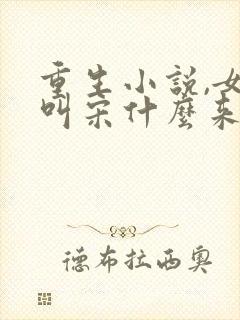 重生小說,女
叫宋什麼來
德布拉西奧